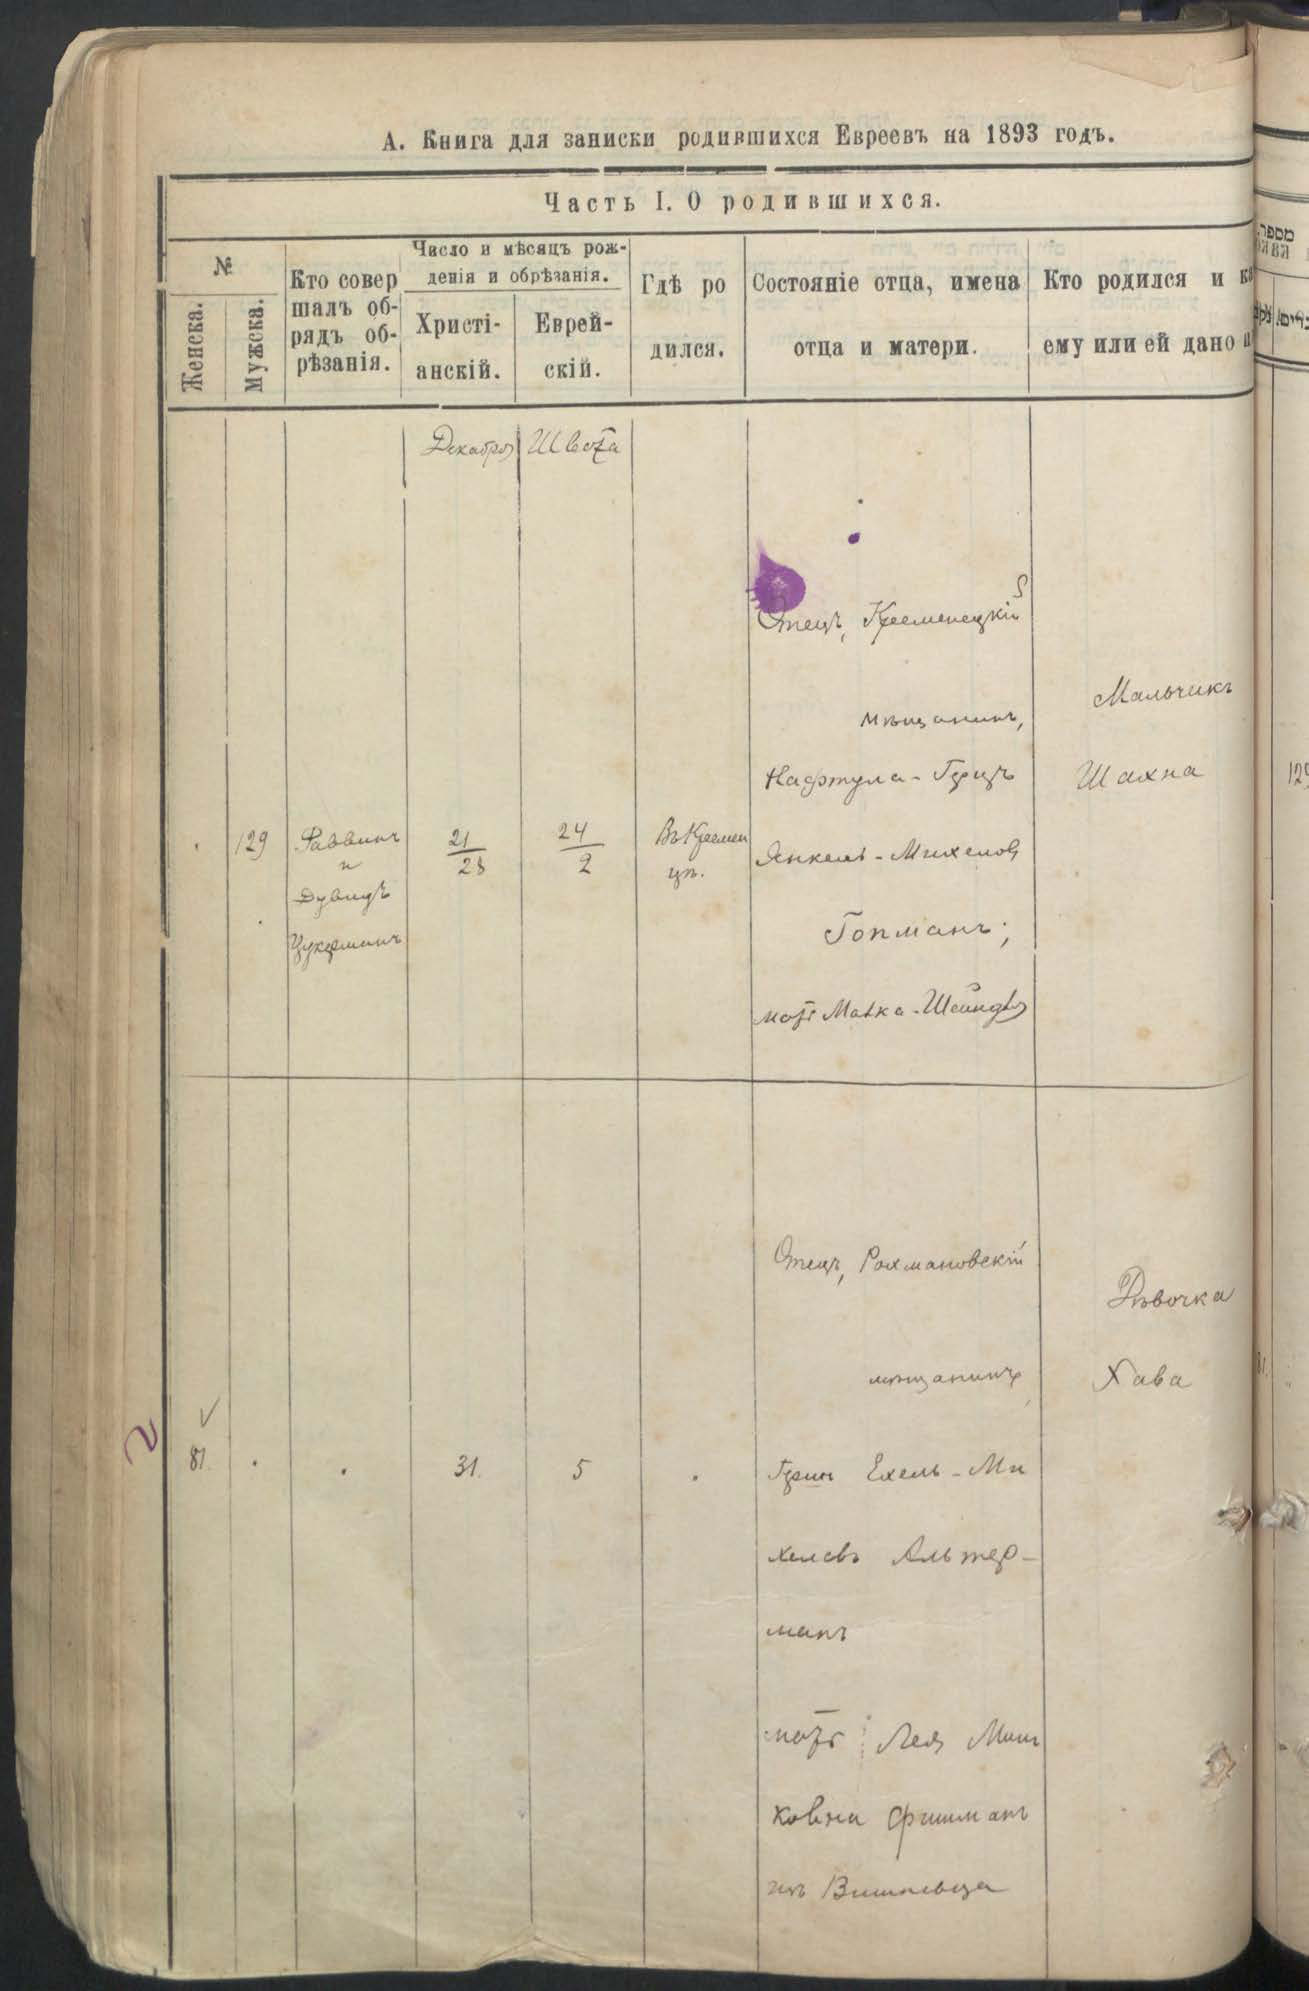 А. Книга для записки родившихся Евреевъ на 1893 годъ.
Часть I. О родившихся.
№
Женска.
Мужска.
Кто совер
шалъ об-
рядъ об-
рѣзанія.
Число и мѣсяцъ рож-
денія и обрѣзанія.
Христі-
анскій.
Еврей-
скій.
Гдѣ ро
дился.
Состояніе отца, имена
отца и матери.
Кто родился и
ему или ей дано
Декабря
Швота
129
Раввинъ
и
Дувидъ
Цукерманъ
21
28
24
2
Въ Кремен
цѣ.
Отецъ, Кременецкій
мѣщанинъ,
Нафтула-Герцъ
Янкель-Михелов
Гопманъ;
мать Матка-Шейндля
Мальчикъ
Шахна
81.
31.
5
Отецъ, Рохмановскій
мѣщанинъ,
Ехель-Ми
хелевъ Альтер-
манъ
мать Лея Мош
ковна Фишман
изъ Вишневца
Дѣвочка
Хава
מספר